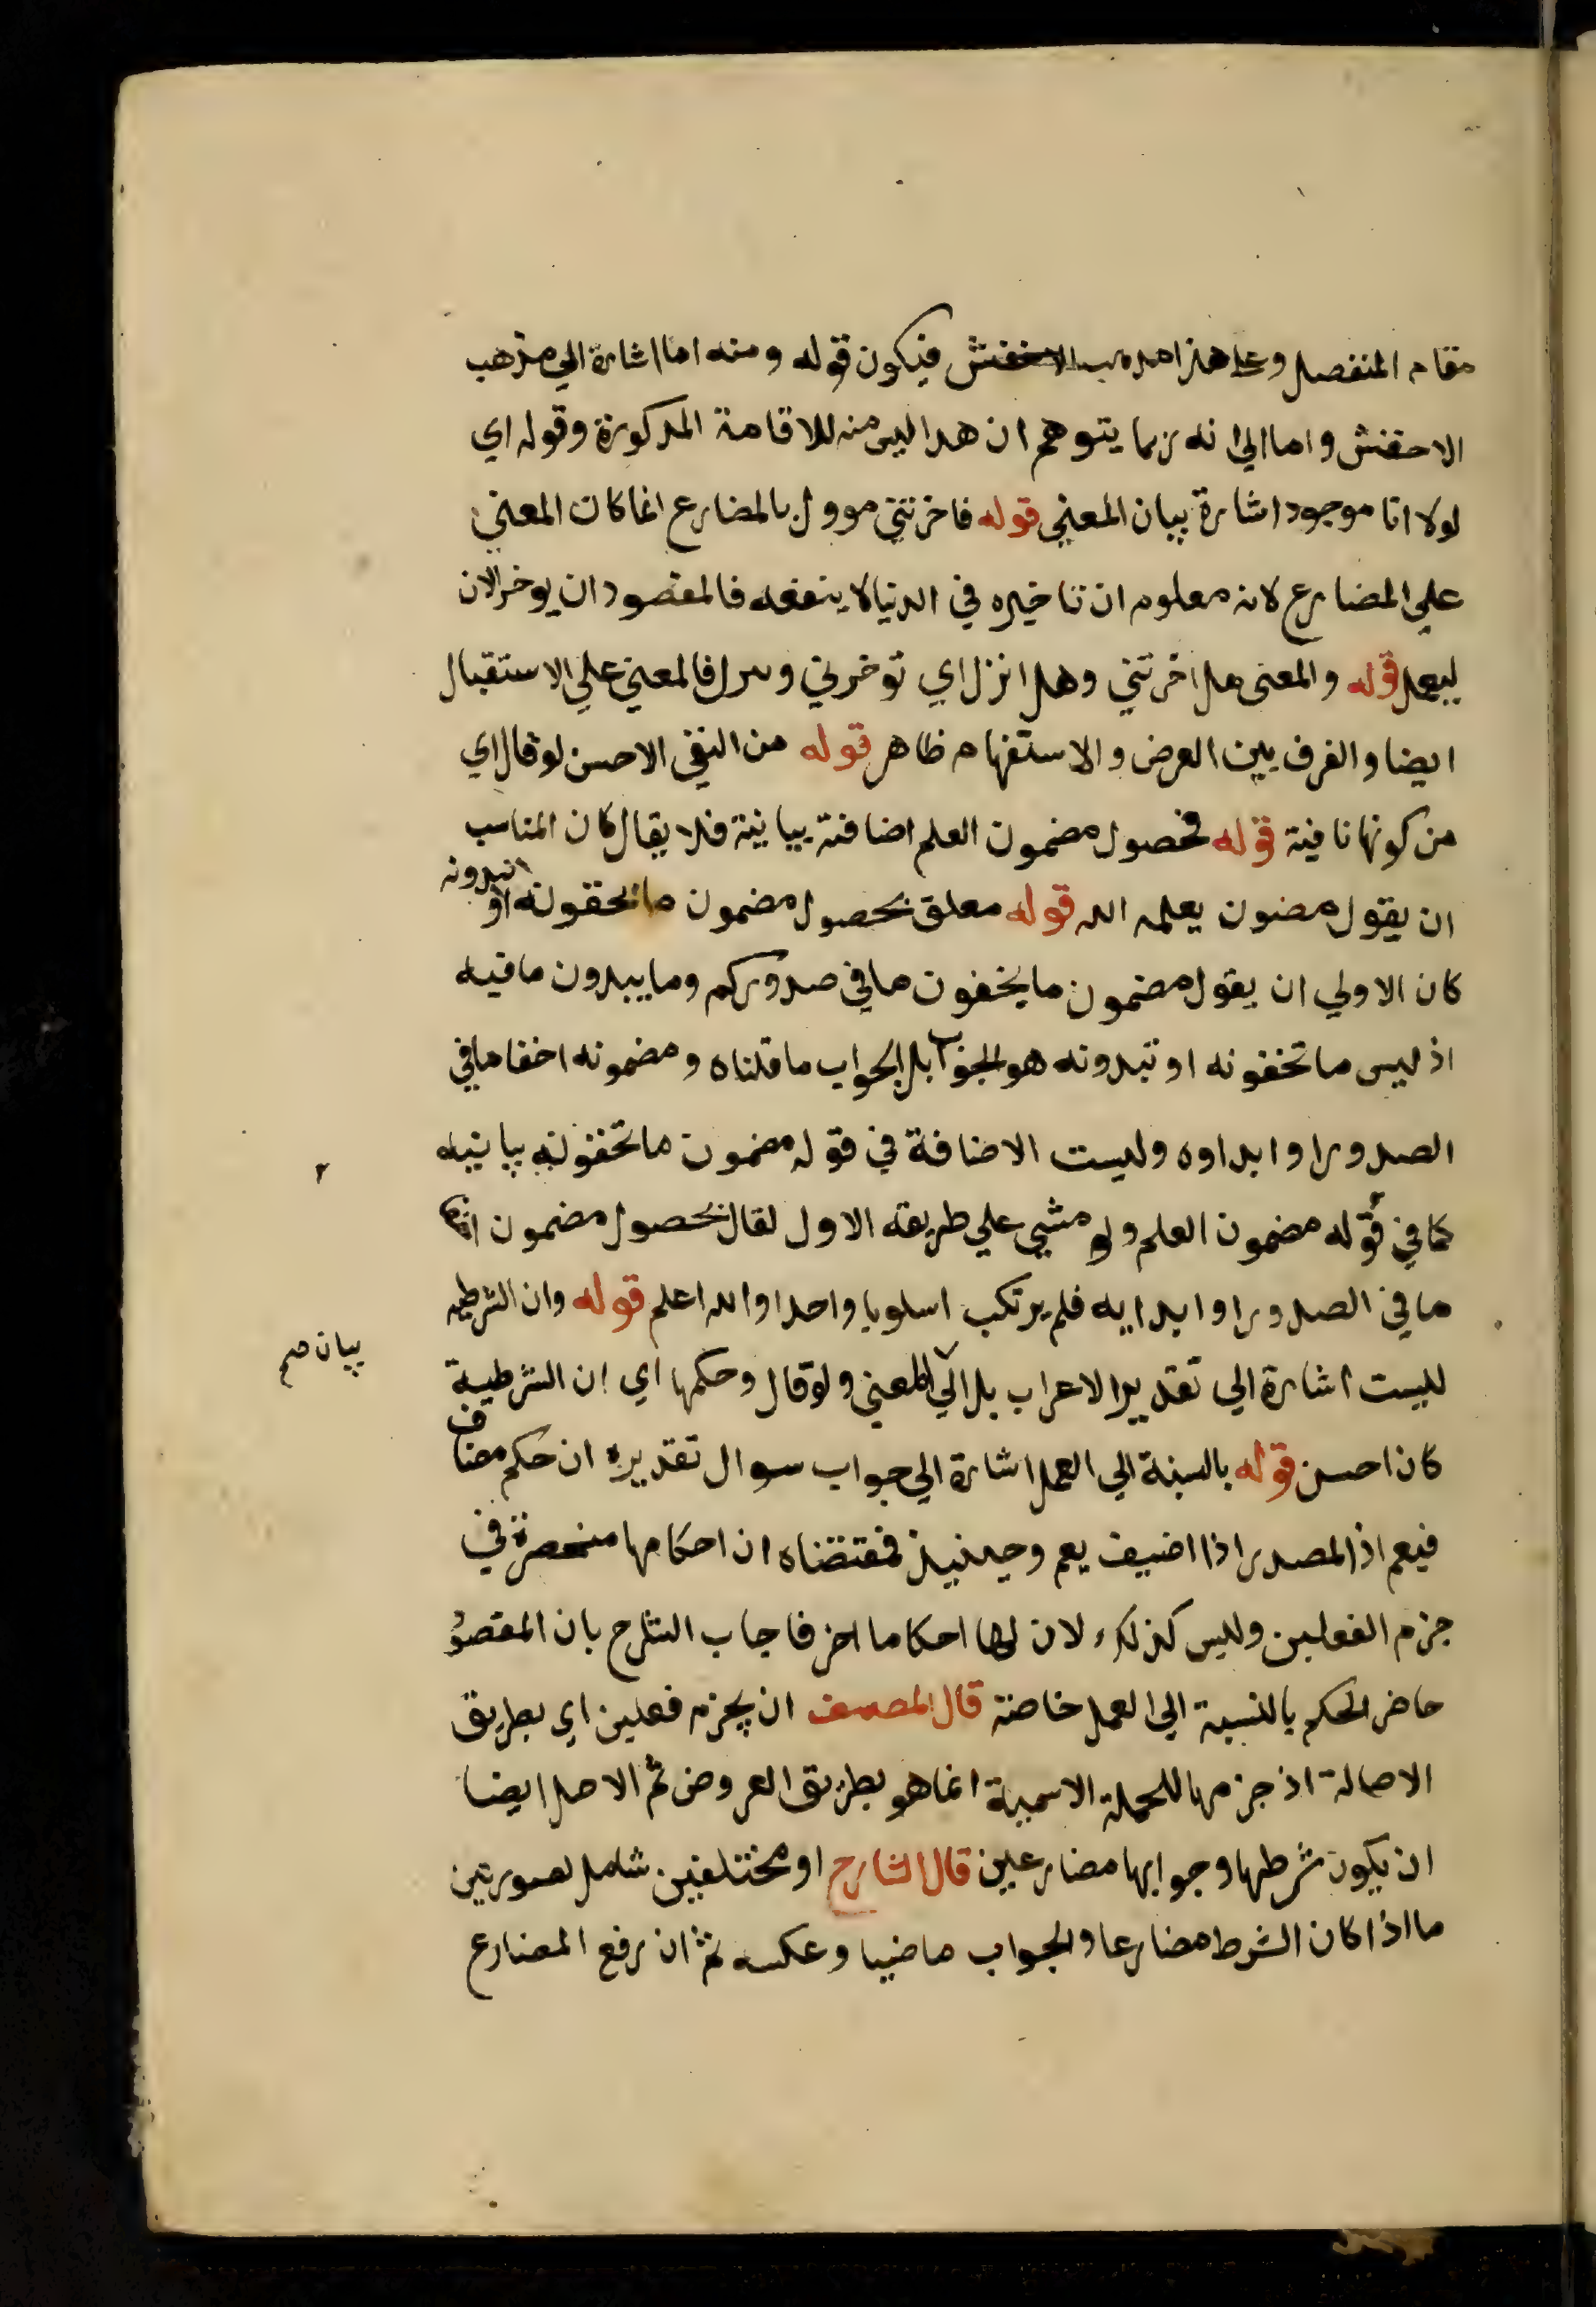 مقام المنفصل وعلى هذا مذهب الاخفش فيكون قوله ومنه اما اشارة الي مذهب
الاحفش واما الي انه ربما يتوهم ان هدا ليس منه للاقامة المدكورة وقوله اي
لولا انا موجود اشارة ببيان المعني قوله فاخرتني موول بالمضارع انما كان المعني
علي المضارع لانه معلوم ان تاخيره في الدنيا لا ينفعه فالمقصود ان يوخر الان
ليعمل قوله والمعنى هل اخرتني وهل انزل اي توخرني وسرل فالمعني علي الاستقبال
ايضا والفرق بين العرض والاستفهام ظاهر قوله من النفي الاحسن لو قال اي
من كونها نافية قوله فحصول مضمون العلم اضافة بيانية فلا يقال كان المناسب
ان يقول مضون يعلمه الله قوله معلق بحصول مضمون ما تخفونه او تبدونه
كان الاولي ان يقول مضمون ما يخفون ما في صدوركم وما يبدون ما فيه
اذ ليس ما تخفونه او تبدونه هو الجواب بل الجواب ما قلناه ومضمونه اخفا ما في
الصدور او ابداوه وليست الاضافة في قوله مضمون ما تخفونه بيانيه
كما في قوله مضمون العلم ولو مشي علي طريقه الاول لقال بحصول مضمون
ما في الصدور او ابدايه فلم يرتكب اسلوبا واحدا والله اعلم قوله وان الشرطيه
ليست اشارة الي تقدير الاعراب بل الي المعني ولو قال وحكمها اي ان الشرطية
بيان صح
كان احسن قوله بالسبنة الي العمل اشارة الي جواب سوال تقديره ان حكم مضاف
فيعم اذ المصدر اذا اضيف يعم وحينيذ فمقتضاه ان احكامها منحصرة في
جزم الفعلين وليس كذلك لان لها احكاما اخر فاجاب الشارح بان المقصود
حاضر الحكم بالنسبة الي العمل خاصة قال المصنف ان يجزم فعلين اي بطريق
الاصالة اذ جزمها للجملة الاسمية انما هو بطريق العروض ثم الاصل ايضا
ان يكون شرطها وجوابها مضارعين قال الشارح او مختلفين شامل لصورتين
ما اذا كان الشرط مضارعا والجواب ماضيا وعكسه ثم ان رفع المضارع